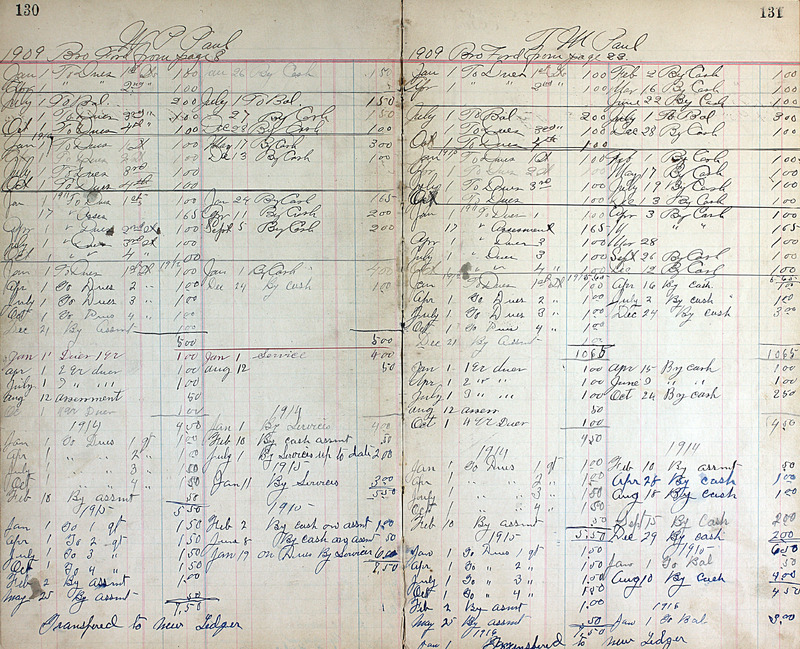 130
W P Paul
1909 Bro Ford from page 8
Jan 1 To Dues 1st 1 00 Jan 26 By Cash 1 50
Apr 1 " " 2nd "
July 1 To Bal 2 00 July 1 To Bal 1 50
" To Dues 3rd " 1 00 " 27 By Cash 1 50
Oct 1 To Dues 4th " 1 00 Dec 28 By Cash 1 00
Jan 1 To Dues 1 00 May 17 By Cash 3 00
Apr 1 To Dues 2nd 1 00 Dec 13 By Cash 1 00
July 1 To Dues 3rd 1 00
Oct 1 To Dues 4th 1 00
Jan 1 1911 To Dues 1st 1 00 Jan 24 By Cash 1 65
17 " Asses 65 Apr 11 By Cash 2 00
Apr 1 " Dues 2nd 1 00 Sept 5 By Cash 2 00
July 1 " Dues 3rd 1 00
Oct 1 " " 4 " 1 00
Jan 1 To Dues 1st 1912 1 00 Jan 1 By Cash 4 00
Apr 1 To Dues 2 " 1 00 Dec 24 By Cash 1 00
July 1 To Dues 3 " 1 00
Oct 1 To Dues 4 " 1 00
Dec 21 By Assmt 1 00
5 00 5 00
Jan 1 Dues 1 qr 1 00 Jan 1 Service 4 00
Apr 1 2 qr dues 1 00 Aug 12 50
July 1 3 " " " 1 00
Aug 12 assessment 50
Oct 1 4 qr Dues 1 00
1914 4 50 1914
Jan 1 By Services 4 00
Jan 1 To Dues 1 qt 1 00 Feb 10 By cash assmt 50
Apr 1 " " 2 " 1 00 July 1 By Services up to date 2 00
July 1 " " 3 " 1 50 1915
Oct 1 " " 4 " 1 50 Jan 11 By Services 3 00
Feb 10 By assmt 50 5 50
1915 5 50 1915
Jan 1 To 1 qt 1 50 Feb 2 By Cash on assmt 1 00
Apr 1 To 2 qt 1 50 June 8 By Cash on assmt 50
July 1 To 3 " 1 50 Jan 19 on Dues By Services 6 00
Oct 1 To 4 " 1 50 7 50
Feb 2 By Assmt 1 00
May 25 By Assmt 50
7 50
Transfered to New Ledger
131
T M Paul
1909 Bro Ford from page 22
Jan 1 To Dues 1st 1 00 Feb 2 By Cash 1 00
Apr 1 " " 2nd " 1 00 Mar 16 By Cash 1 00
June 22 By Cash 1 00
July 1 To Bal 2 00 July 1 To Bal 3 00
" To Dues 3rd " 1 00 Dec 28 By Cash 1 00
Oct 1 To Dues 4th 1 00
Jan 1 1910 To Dues 1 00 Feb 1 By Cash 1 00
Apr 1 To Dues 2nd 1 00 May 17 By Cash 1 00
July 1 To Dues 3rd 1 00 July 19 By Cash 1 00
Oct 1 00 Dec 13 By Cash 1 00
Jan 1 Dues 1 1 00 Apr 3 By Cash 1 00
17 " Assessment 1 65 " " " 1 65
Apr 1 " Dues 2 1 00 Mar 28 1 00
July 1 " Dues 3 1 00 Sept 26 By Cash 1 00
Oct 1 " " 4 " 1 00 Dec 12 By Cash 1 00
Jan 1 To Dues 1st 1 00 Apr 16 By cash
Apr 1 To Dues 2 " 1 00 July 2 By Cash 1 00
July 1 To Dues 3 " 1 00 Dec 24 By cash 3 00
Oct 1 To Dues 4 " 1 00
Dec 21 By Assmt 1 00
10 65 10 65
Jan 1 1 qr dues 1 00 Apr 15 By cash 1 00
Apr 1 2 " " 1 00 June 9 " " 1 00
July 1 3 " " 1 00 Oct 24 By cash 2 50
Aug 12 assem 50
Oct 1 4 qr Dues 1 00 4 50
4 50
1914 1914
Jan 1 To Dues 1 qt 1 00 Feb 10 By assmt 50
Apr 1 " " 2 " 1 00 Apr 28 By Cash 1 00
July 1 " " 3 " 1 50 Aug 18 By Cash 1 00
Oct 1 " " 4 " 1 50
Feb 10 By assmt 50 Sept 15 By Cash 2 00
1915 5 50 Dec 29 By cash 2 00
Jan 1 To Dues 1 qt 1 50 1915 6 50
Apr 1 To " 2 " 1 50 Jan 1 To Bal 50
July 1 To " 3 " 1 50 Aug 10 By Cash 4 00
Oct 1 To " 4 " 1 50 4 50
Feb 2 By Assmt 1 00 1916
May 25 By Assmt 50 Jan 1 To Bal 3 00
1916 7 50
Jan 1 Transfered to New Ledger